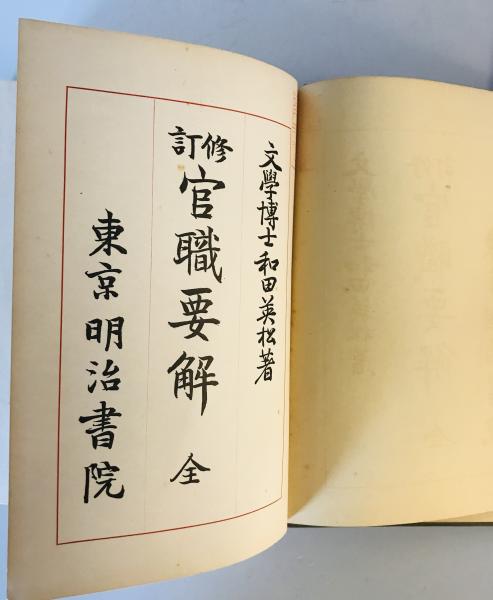 文學博士 和田英松著
修訂 官職要解 全
東京 明治書院